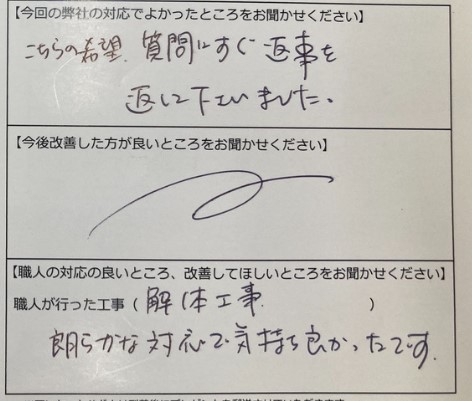 【今回の弊社の対応でよかったところをお聞かせください】
こちらの希望、質問にすぐ返事を
返して下さいました。
【今後改善した方が良いところをお聞かせください】
【職人の対応の良いところ、改善してほしいところをお聞かせください】
職人が行った工事（解体工事）
朗らかな対応で気持ち良かったです。